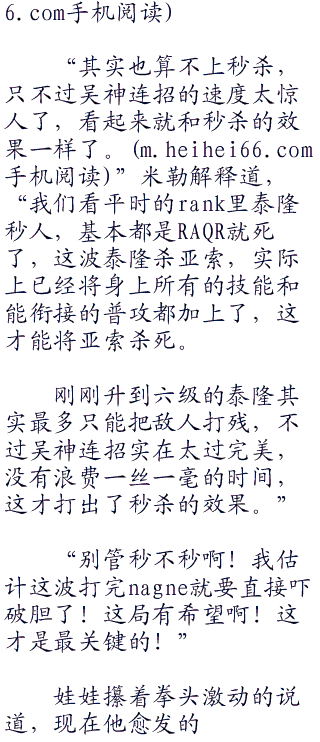 6.com手机阅读)
“其实也算不上秒杀，
只不过吴神连招的速度太惊
人了，看起来就和秒杀的效
果一样了。(m.heihei66.com
手机阅读)”米勒解释道，
“我们看平时的rank里泰隆
秒人，基本都是RAQR就死
了，这波泰隆杀亚索，实际
上已经将身上所有的技能和
能衔接的普攻都加上了，这
才能将亚索杀死。
刚刚升到六级的泰隆其
实最多只能把敌人打残，不
过吴神连招实在太过完美，
没有浪费一丝一毫的时间，
这才打出了秒杀的效果。”
“别管秒不秒啊！我估
计这波打完nagne就要直接吓
破胆了！这局有希望啊！这
才是最关键的！”
娃娃攥着拳头激动的说
道，现在他愈发的